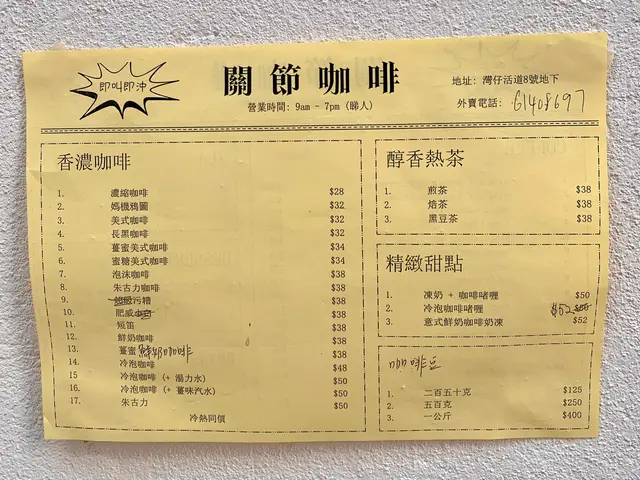 即叫即沖
關節咖啡
營業時間: 9am - 7pm (睇人)
地址: 灣仔活道8號地下
外賣電話: 61408697
香濃咖啡
1. 濃縮咖啡 $28
2. 媽機鴉圖 $32
3. 美式咖啡 $32
4. 長黑咖啡 $32
5. 薑蜜美式咖啡 $34
6. 蜜糖美式咖啡 $34
7. 泡沫咖啡 $38
8. 朱古力咖啡 $38
9. 超級污糟 $38
10. 肥威小白 $38
11. 短笛 $38
12. 鮮奶咖啡 $38
13. 薑蜜鮮奶咖啡 $38
14. 冷泡咖啡 $48
15 冷泡咖啡 (+ 湯力水) $50
16 冷泡咖啡 (+ 薑味汽水) $50
17. 朱古力 $50
冷熱同價
醇香熱茶
1. 煎茶 $38
2. 焙茶 $38
3. 黑豆茶 $38
精緻甜點
1. 凍奶 + 咖啡啫喱 $50
2. 冷泡咖啡啫喱 $52
3. 意式鮮奶咖啡奶凍 $52
咖啡豆
1. 二百五十克 $125
2. 五百克 $250
3. 一公斤 $400